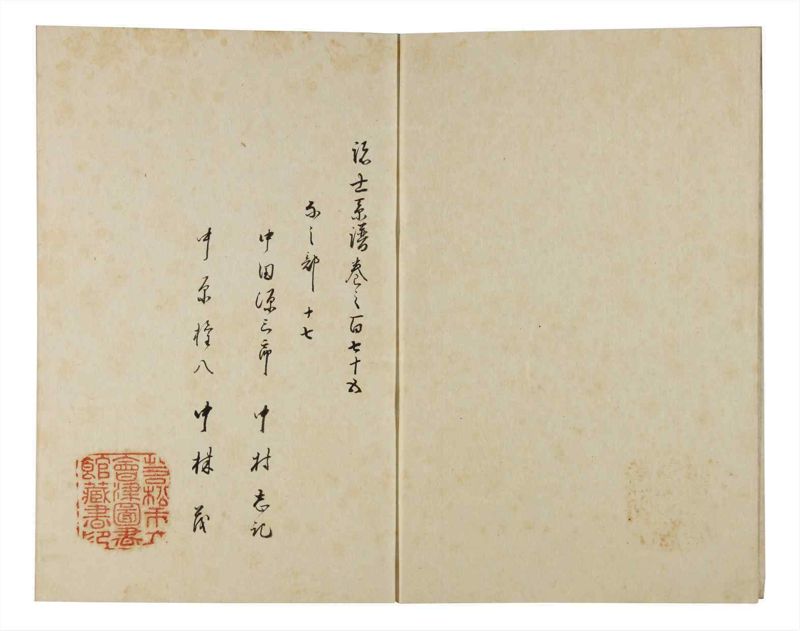 諸士系譜巻之百七十五
なの部 十七
中田源三郎 中村志記
中原権八 中村茂
若松市立
會津圖書
館藏書印